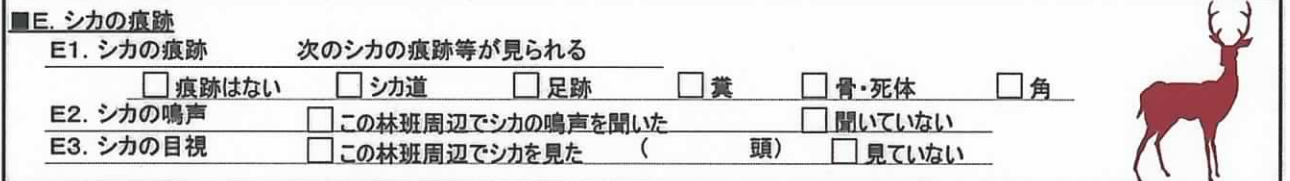 ■E. シカの痕跡
E1. シカの痕跡 次のシカの痕跡等が見られる
□ 痕跡はない □ シカ道 □ 足跡 □ 糞 □ 骨・死体 □ 角
E2. シカの鳴声 □ この林班周辺でシカの鳴声を聞いた □ 聞いていない
E3. シカの目視 □ この林班周辺でシカを見た ( 頭) □ 見ていない